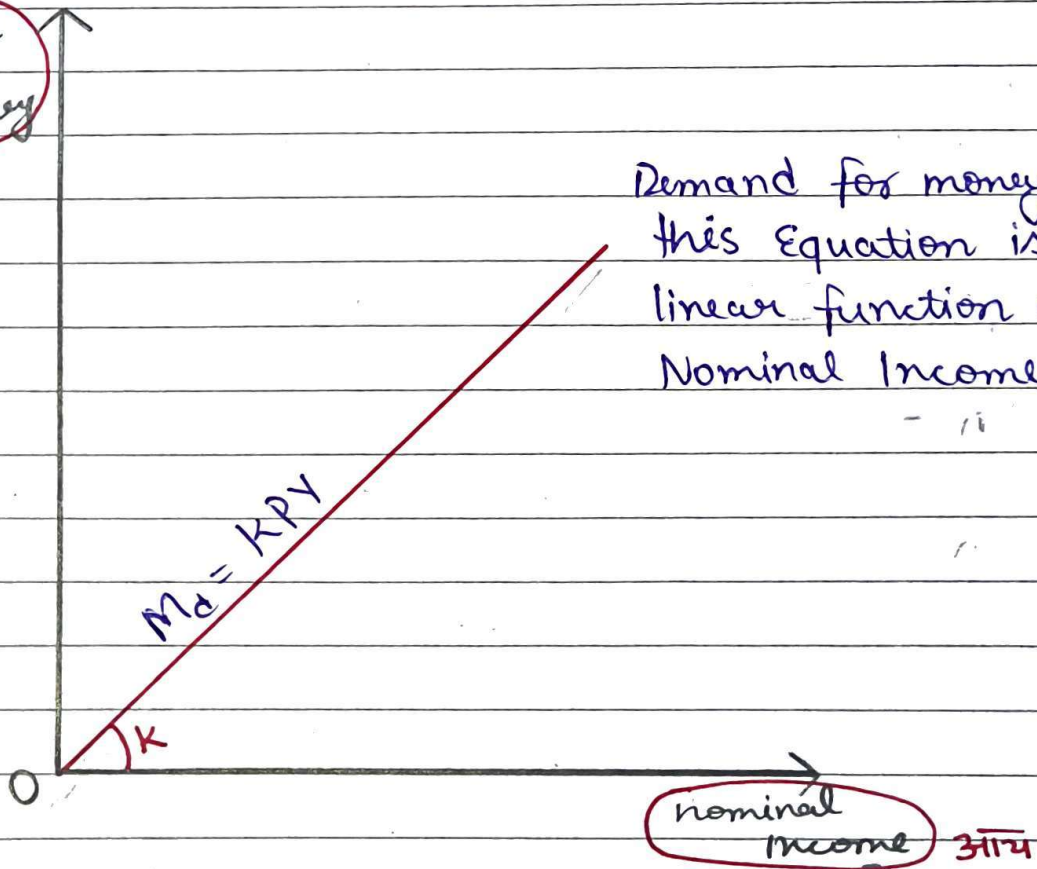 ey
Demand for money
this Equation is
linear function
Nominal Income
Md = KPY
K
O
nominal
Income आय